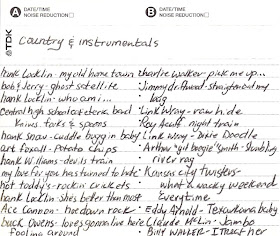 A DATE/TIME
NOISE REDUCTION
B DATE/TIME
NOISE REDUCTION
TDK
Country & instrumentals
hank Locklin - my old home town
bob & Jerry - ghost satellite
hank Locklin - who am i...
central high school cafeteria band
knives, forks & spoons
hank snow - cuddle buggin baby
art foxall - potato chips
hank Williams - devils train
my love for you has turned to hate
hot toddy's - rockin' crickets
hank Locklin shes better than most
Ace Cannon - hoedown rock
buck Owens - loves gonna live here
Fooling around
Charlie Walker - pick me up...
Jimmy driftwood - straighten out my
bag
Link Wray - rawhide
Roy Acuff - night train
Link Wray - Dixie Doodle
Arthur "guit boogie" Smith -
river rag
Kansas city Twisters -
what a wacky weekend
Everytime
Eddy Arnold - Texarkana baby
Clyde McLin - Jambo
Billy WALKER -